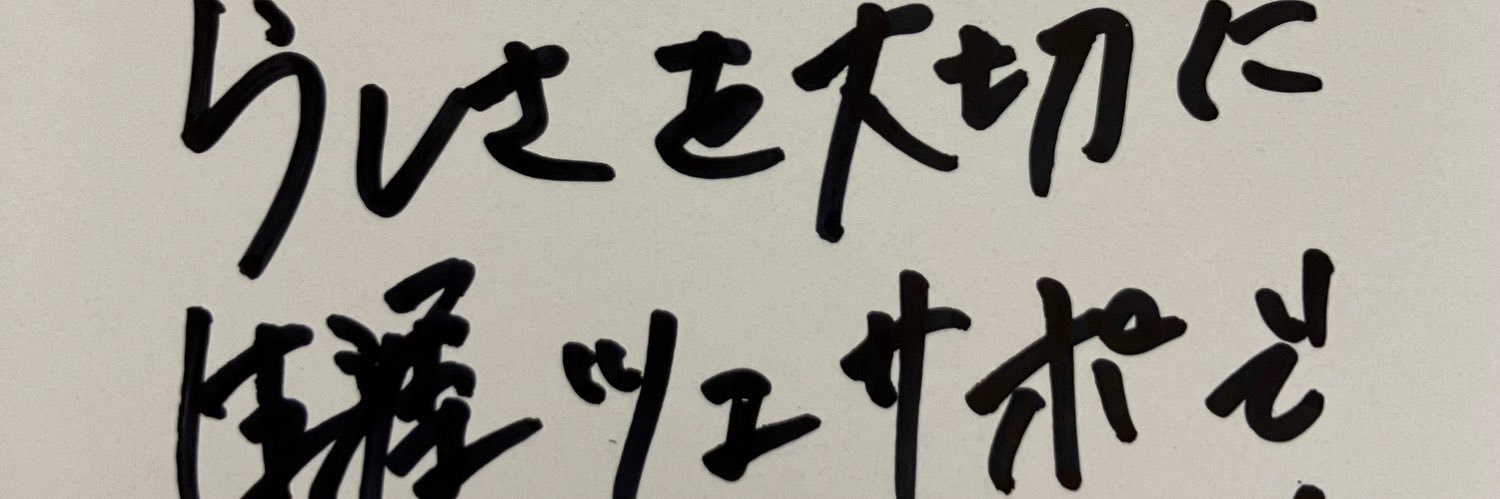 らしさを大切に
ツエサポで